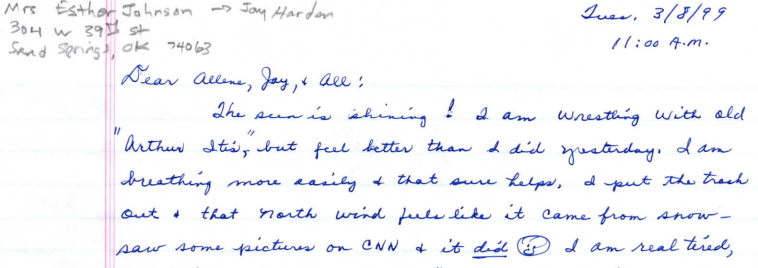 Mrs Esther Johnson → Jay Harden
304 W 39th st
Sand Springs, OK 74063
Tues. 3/8/99
11:00 A.M.
Dear Allene, Jay, & All:
The sun is shining! I am wrestling with old
"Arthur Itis," but feel better than I did yesterday. I am
breathing more easily & that sure helps. I put the trash
out & that North wind feels like it came from snow-
saw some pictures on CNN & it did ☺ I am real tired,